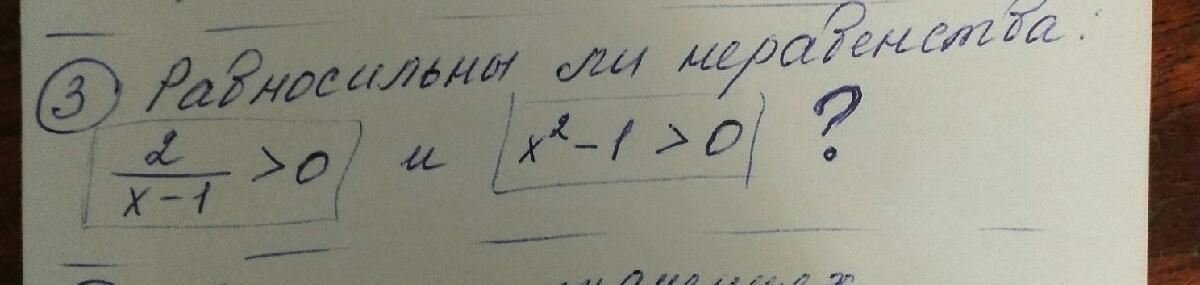 ③ Равносильны ли неравенства:
2/(x-1) > 0 и x²-1 > 0 ?